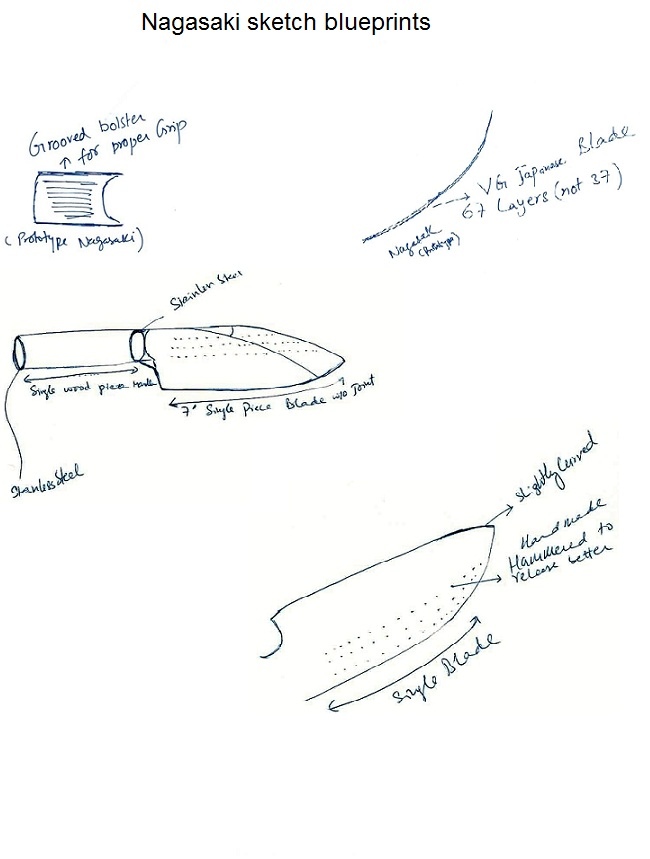 Nagasaki sketch blueprints
Grooved bolster
for proper Grip
(Prototype Nagasaki)
VG Japanese Blade
67 Layers (not 37)
Nagasaki
(Prototype)
Stainless Steel
Single wood piece
7" Single Piece Blade w/o Joint
Stainless Steel
Slightly Curved
Hand made
Hammered to
release better
Single Blade